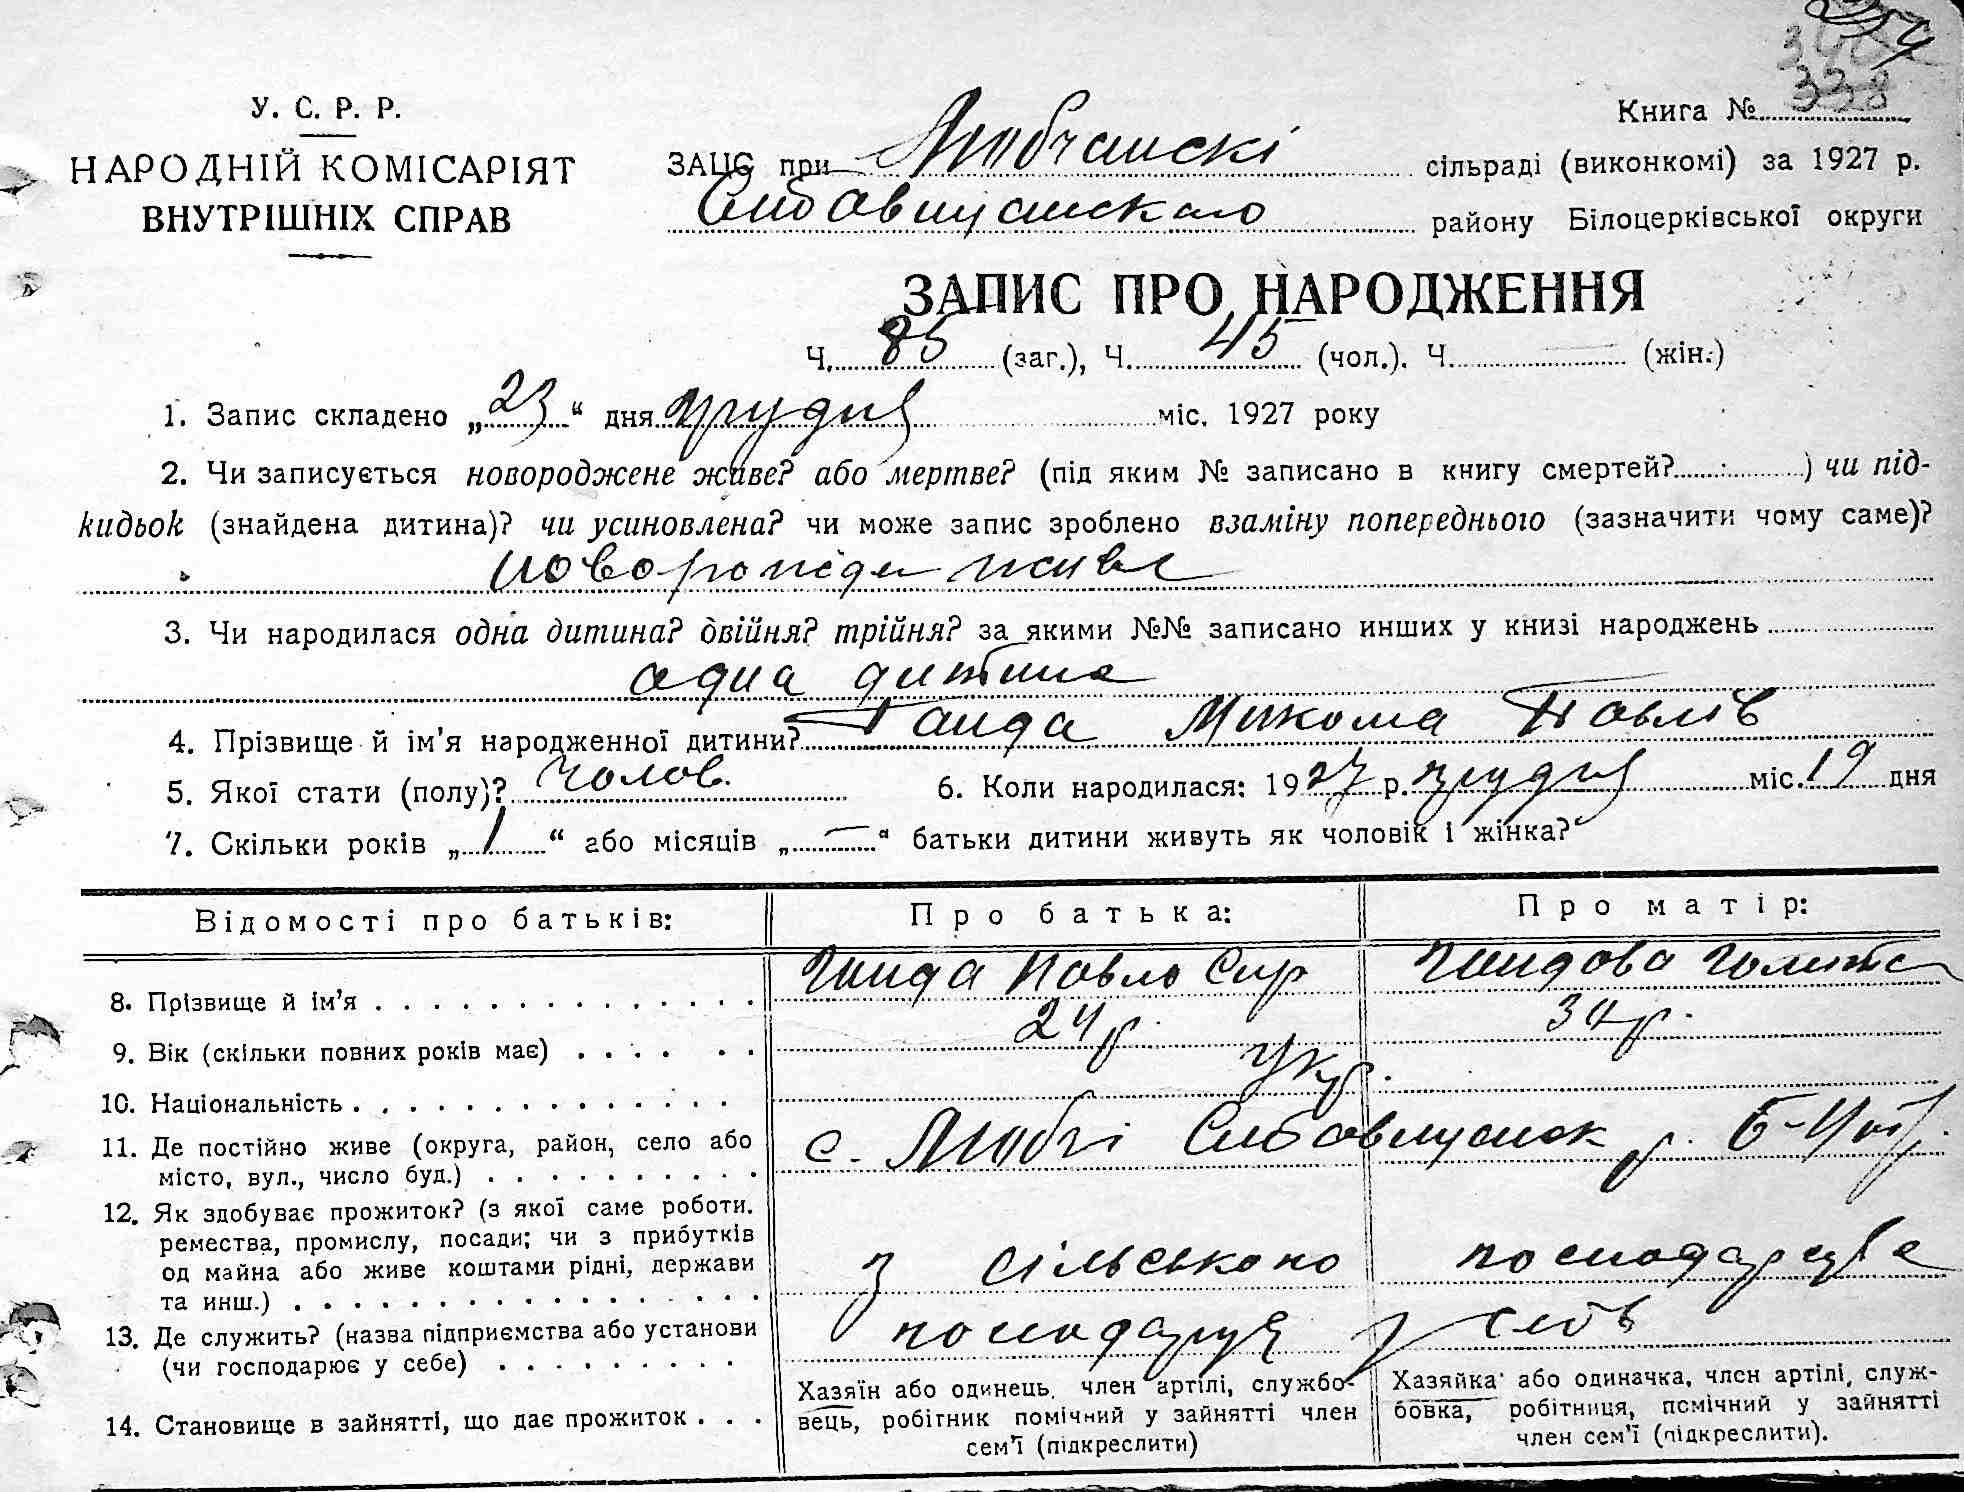 254
340
338
У. С. Р. Р.
НАРОДНІЙ КОМІСАРІЯТ
ВНУТРІШНІХ СПРАВ
Книга №
ЗАЦС при Любчанскі сільраді (виконкомі) за 1927 р.
району Білоцерківської округи
ЗАПИС ПРО НАРОДЖЕННЯ
Ч. 85 (заг.), Ч. 45 (чол.). Ч. — (жін.)
1. Запис складено „23“ дня грудня міс. 1927 року
2. Чи записується новороджене живе? або мертве? (під яким № записано в книгу смертей? ) чи під-
кидьок (знайдена дитина)? чи усиновлена? чи може запис зроблено взаміну попереднього (зазначити чому саме)?
живе
3. Чи народилася одна дитина? двійня? трійня? за якими №№ записано инших у книзі народжень
одна дитина
4. Прізвище й ім’я народженної дитини? Ганда Микола Павлів
5. Якої стати (полу)? Чолов. 6. Коли народилася: 1927 р. грудня міс. 19 дня
7. Скільки років „1“ або місяців „—“ батьки дитини живуть як чоловік і жінка?
Відомості про батьків: Про батька: Про матір:
8. Прізвище й ім’я Ганда Павло Гандова
9. Вік (скільки повних років має) 24 р. 34 р.
10. Національність Укр.
11. Де постійно живе (округа, район, село або
місто, вул., число буд.) с. Любчі р. Б-Цер.
12. Як здобуває прожиток? (з якої саме роботи.
ремества, промислу, посади; чи з прибутків
од майна або живе коштами рідні, держави
та инш.) з сільського
13. Де служить? (назва підприємства або установи
(чи господарює у себе) у себе
14. Становище в зайнятті, що дає прожиток
Хазяїн або одинець, член артілі, службо-
вець, робітник помічний у зайнятті член
сем’ї (підкреслити)
Хазяйка або одиначка, член артілі, служ-
бовка, робітниця, помічний у зайнятті
член сем’ї (підкреслити).